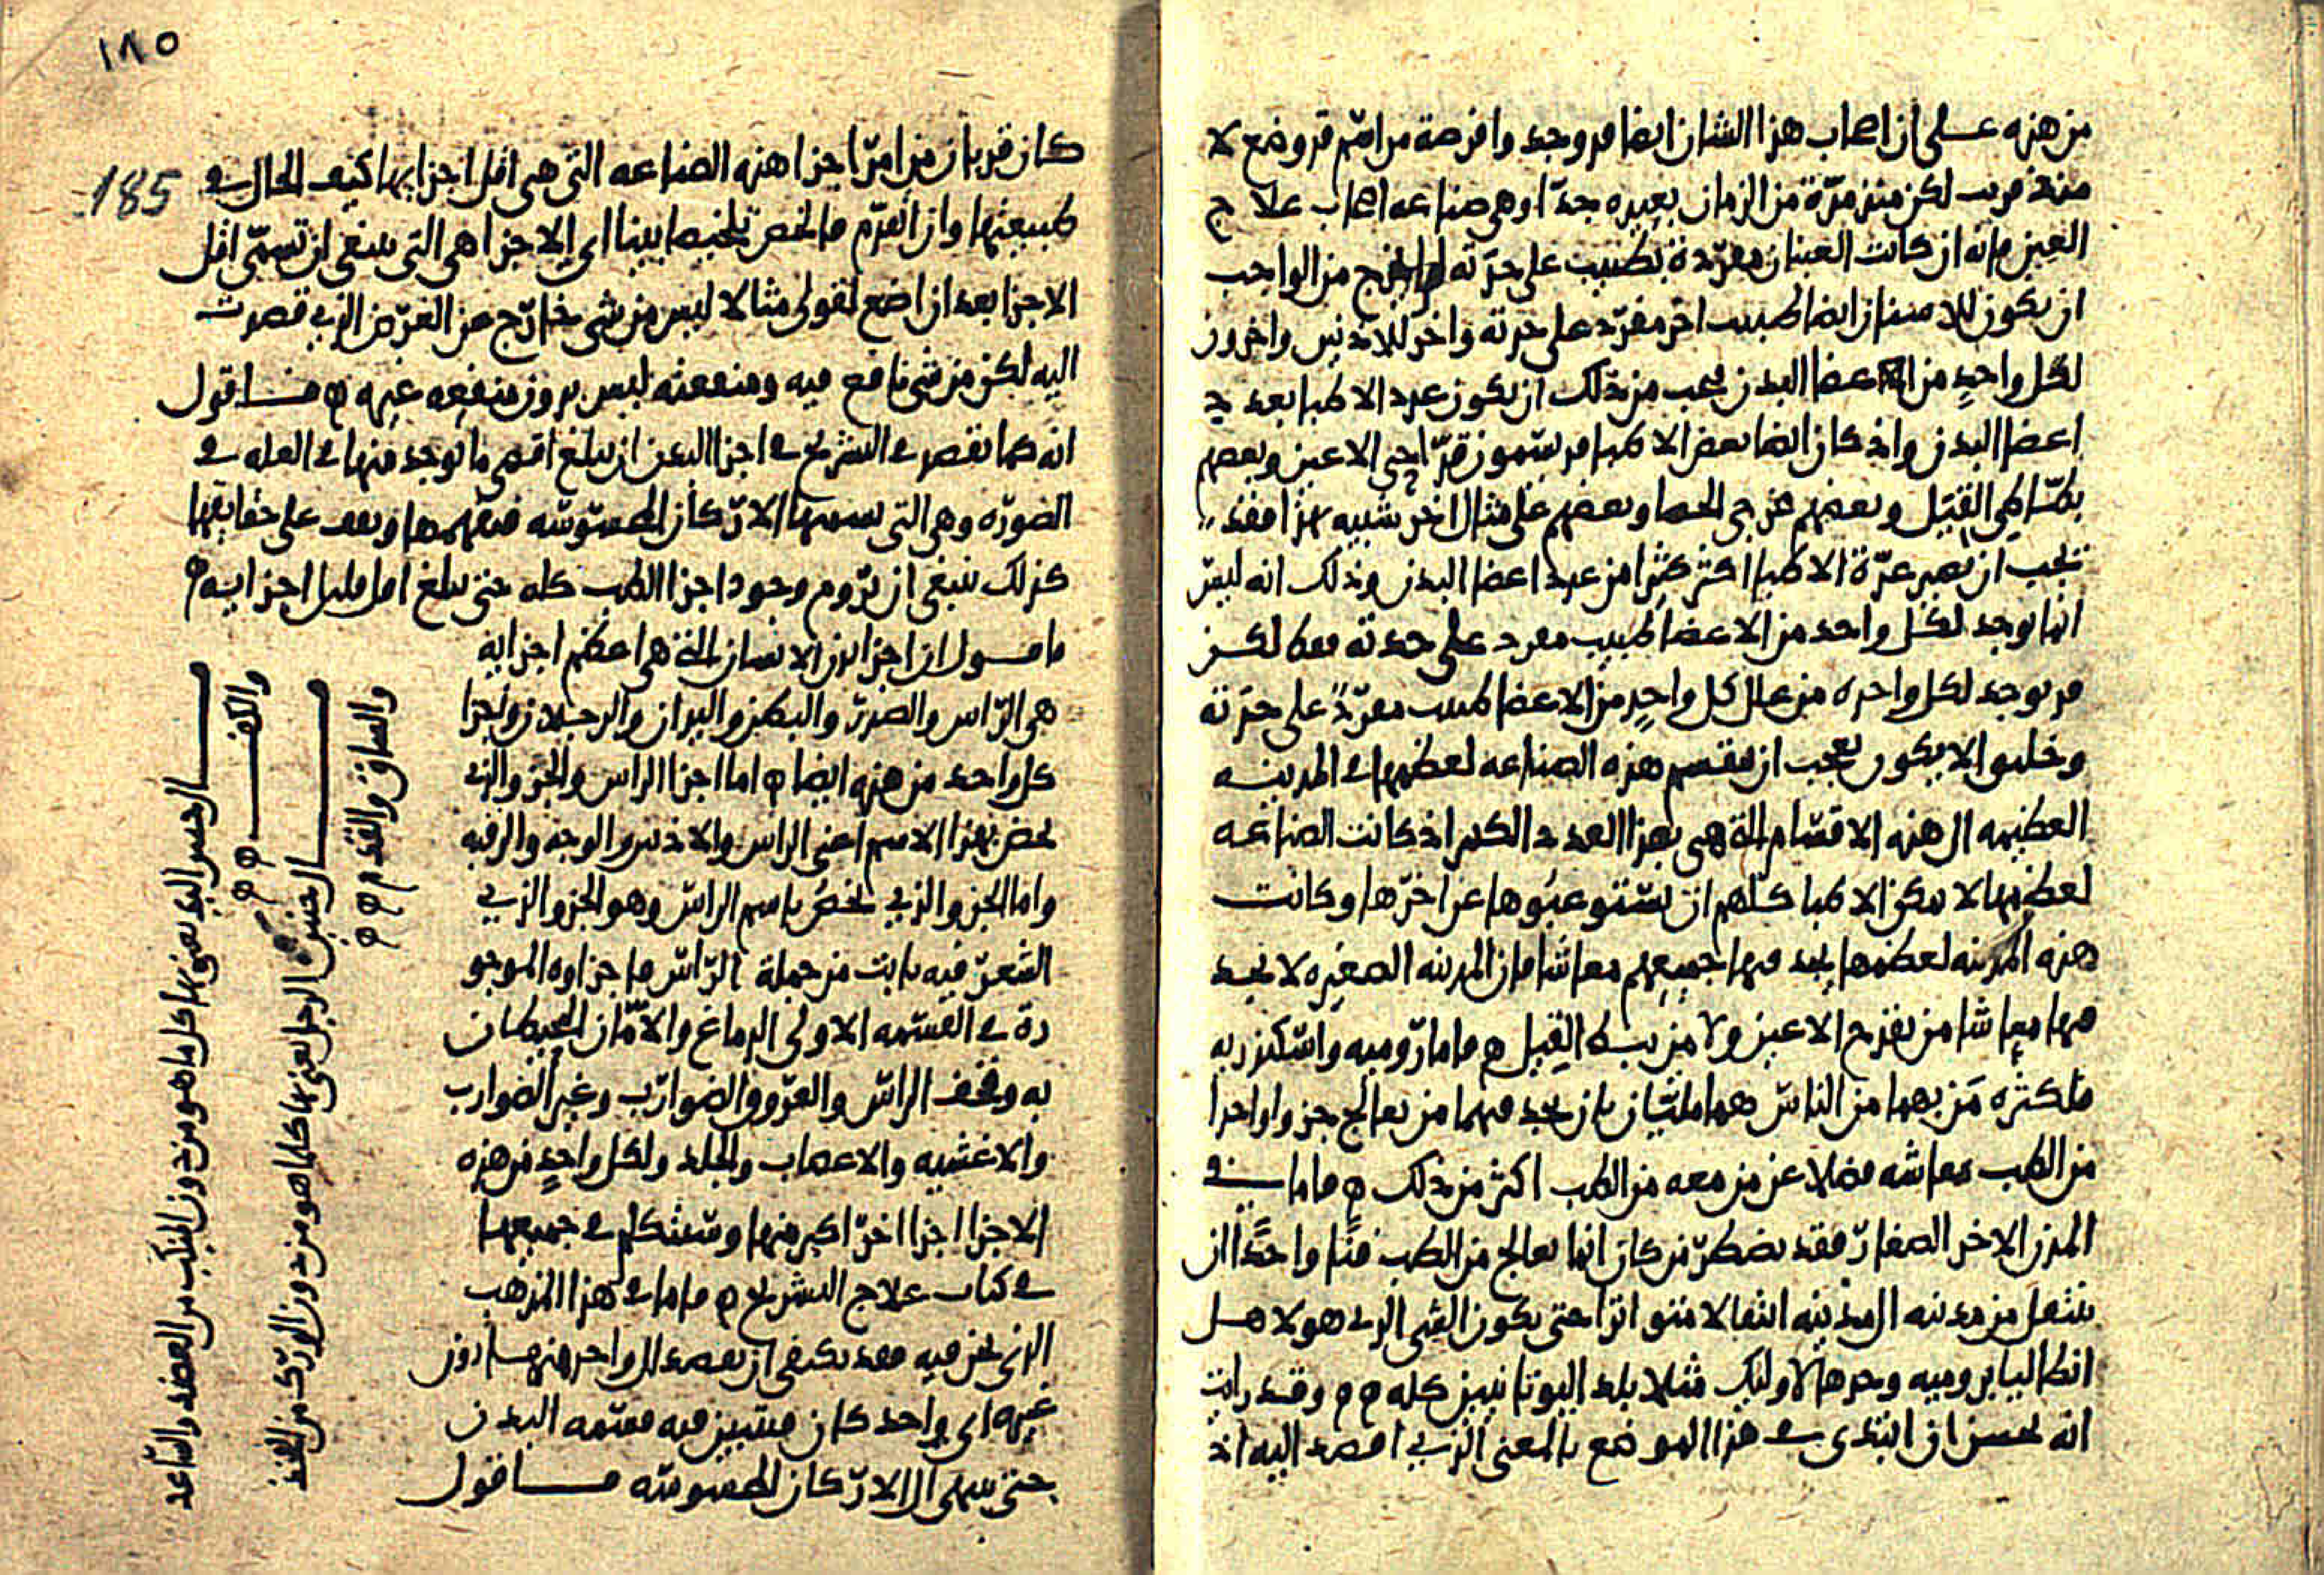 من هذه على ان اصحاب هذا الشان ايضا قد وجد وافرصة من امم قد وضع لا
منذ قريب لكن منذ مدة من الزمان بعيده جدا وهي صناعه اصحاب علاج
العين فانه ان كانت العينان مفردة بطبيب على حدته من الواجب
ان يكون للاسنان ايضا طبيب اخر مفرد على حدته واخر للاذنين واخرون
لكل واحد من اعضا البدن فيجب من ذلك ان يكون عدد الاطبا بعدد
اعضا البدن واذ كان ايضا بعض الاطبا قد يسمون الاعين وبعضهم
القيل وبعضهم الحصا وبعضهم على مثال اخر شبيه بهذا فقد
يجب ان تصير عدة الاطبا اكثر كثيرا من عدد اعضا البدن وذلك انه ليس
انما يوجد لكل واحد من الاعضا طبيب مفرد على حدته فقط لكن
قد يوجد لكل واحده من علل كل واحد من الاعضا طبيب مفرد على حدته
وخليق الا يكون يجب ان تقسم هذه الصناعه لعظمها في المدينه
العظيمه الى هذه الاقسام التي هي بهذا العدد الكثير اذ كانت الصناعه
لعظمها لا يمكن الاطبا كلهم ان يستوعبوها عن اخرها وكانت
هذه المدينه لعظمها يجد فيها جميعهم معاشا فان المدينه الصغيره لا يجد
فيها معاشا من يقدح الاعين ولا من يبط القيل فاما روميه واسكندريه
فلكثره من بهما من الناس هما مليتان بان يجد فيهما من يعالج جزوا واحدا
من الطب معاشه فضلا عن من معه من الطب اكثر من ذلك فاما في
المدن الاخر الصغار فقد يضطر من كان انما يعالج من الطب فنا واحدا ان
ينتقل من مدينه الى مدينه انتقالا متواترا حتى يكون الشي الذي هولا
بروميه وحدها لاوليك مثلا بلد اليونانيين كله وقد رايت
انه يحسن ان ابتدي في هذا الموضع بالمعنى الذي اقصد اليه اذ
١٨٥
185
كان قد بان من امر اجزا هذه الصناعه التي هي اقل اجزايها كيف الحال في
طبيعتها وان اتقدم فالخص تلخيصا بينا اي الاجزا هي التي ينبغي ان تسمى اقل
الاجزا بعد ان اضع لقولي مثالا ليس من شي خارج عن الغرض الذي قصدت
اليه لكن من شي نافع فيه ومنفعته ليس بدون منفعه غيره فاقول
انه كما نقصد في التشريح في اجزا البدن ان نبلغ اقصى ما يوجد منها في القله في
الصوره وهي التي نسميها الاركان المحسوسه فنفهمها ونقف على حقايقها
كذلك ينبغي ان نروم وجود اجزا الطب كله حتى نبلغ اقل قليل اجزايه
فاقول ان اجزا بدن الانسان التي هي اعظم اجزايه
هي الراس والصدر والبطن واليدان والرجلان واجزا
كل واحد من هذه ايضا اما اجزا الراس والجزو الذي
يخص بهذا الاسم اعني الراس والاذنين والوجه والرقبه
واما الجزو الذي يخص باسم الراس وهو الجزو الذي
الشعر فيه نابت من جملة الراس فاجزاوه الموجو
دة في القسمه الاولى الدماغ والامان المحيطان
به وقحف الراس والعروق الضوارب وغير الضوارب
والاغشيه والاعصاب والجلد ولكل واحد من هذه
الاجزا اجزا اخر اكبر منها وستتكلم في جميعها
في كتاب علاج التشريح فاما في هذا المذهب
الذي نحن فيه فقد يكتفي ان يقصد الى واحد منها دون
غيره اي واحد كان فيتبين فيه قسمه البدن
حتى ينتهي الى الاركان المحسوسه فاقول
الجنس اليد يعني بها كل ما هو من دون المنكب من العضد والساعد
والكف
الجنس الرجل يعني بها كلما هو من دون الورك من الفخذ
والساق والقدم